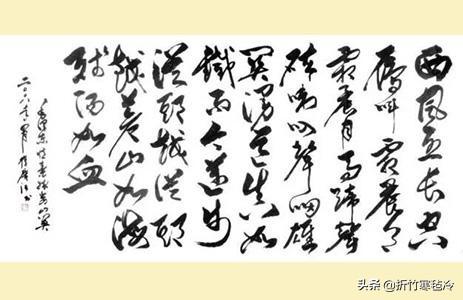 西風烈长空
雁叫霜晨月
霜晨月马蹄聲
碎喇叭聲咽雄
关漫道真如
鐵而今邁步
從頭越從頭
越苍山如海
残阳如血
毛泽东忆秦娥娄山关
二〇〇八年
头条 @折竹寒毡冷